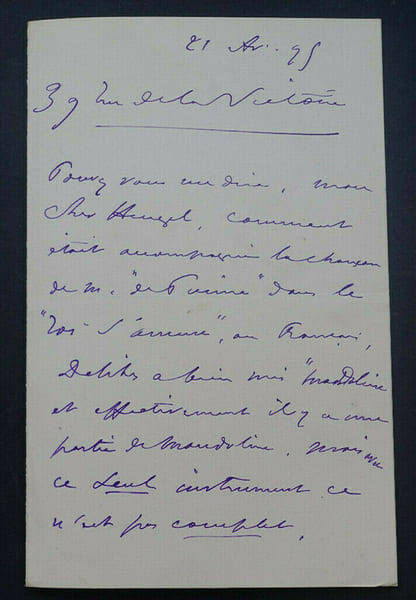 21 Av. 95
39 rue de la Victoire
Pouvez vous me dire, mon
cher Heugel, comment
était accompagnée la chanson
de M. "de dans le
"Roi s'amuse", au Français,
Delibes a bien mis "mandoline
et effectivement il y a une
partie de mandoline, mais
ce seul instrument ce
n'est pas complet.